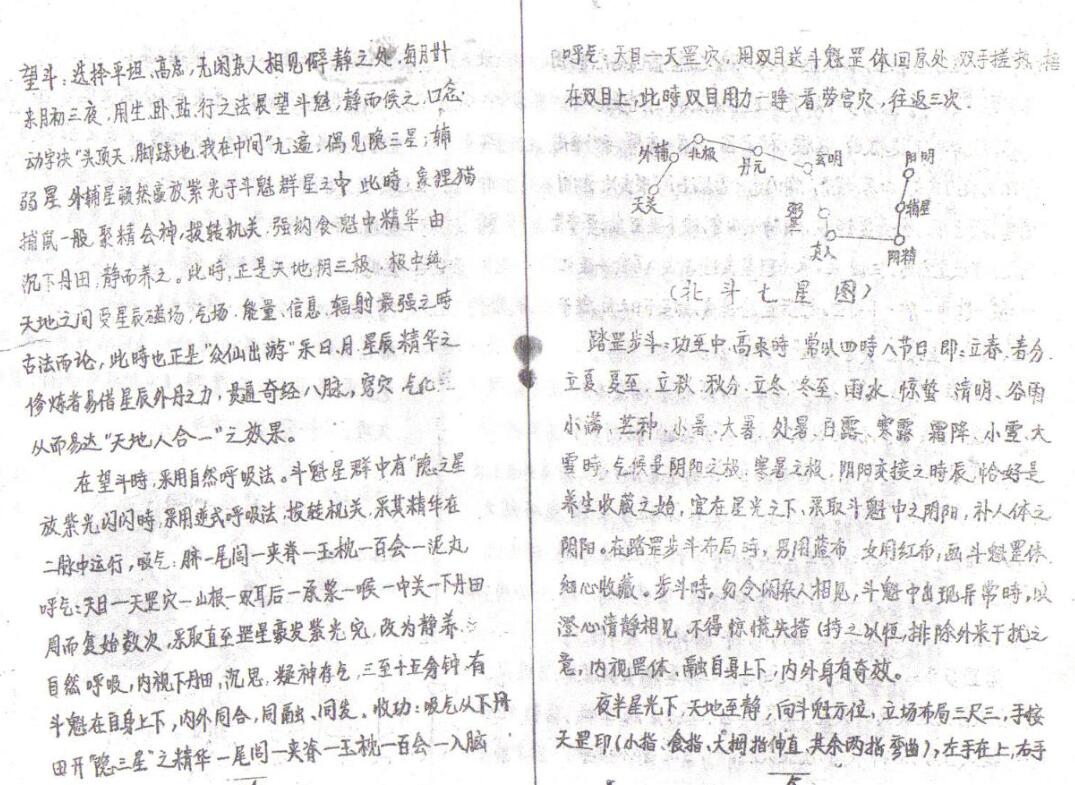 望斗：选择平坦、高层，无闲杂人相见僻静之处，每月廿
末月初三夜，用坐、卧、站、行之法展望斗魁，静而候之，口念
动字决"头顶天，脚踩地，我在中间"九遍；偶见隐三星；辅
弱星 外辅星顿然豪放紫光于斗魁群星之中 此時 象狸猫
捕鼠一般 聚精会神，拔转机关，强纳食魁中精华 由
沉下丹田，静而养之。此時，正是天地阴三极
天地之间受星辰磁场，气场，能量、信息、辐射最强之時
古法而论，此時也正是"众仙出游"采日、月、星辰、精华之
修炼者易借星辰外丹之力，贯通奇经八脉，窍穴，气化
从而易达"天地人合一"之效果。
在望斗時，采用自然呼吸法。斗魁星群中有"隐之星
放紫光闪闪時，采用逆式呼吸法，拔转机关，采其精华在
二脉中运行，吸气：脐一尾闾一夹脊一玉枕一百会一泥丸
呼气：天目一天罡穴一山根一双耳后一承浆一喉一中关一下丹田
周而复始数次，采取直至罡星豪发紫光完，改为静养、
自然呼吸，内视下丹田，沉思，凝神存气，三至十五分钟，有
斗魁在自身上下，内外同合，同融、同发。收功：吸气从下丹
田开"隐三星"之精华一尾闾一夹脊一玉枕一百会一入脑
呼气：天目一天罡穴，用双目送斗魁罡体回原处，双手搓热，捂
在双目上，此時双目用力一睁，看劳宫穴，往返三次．
外辅 北极 丹元 玄明 阳明
天关 弼星 辅星
真人 阴精
（北斗七星图）
踏罡步斗：功至中、高乘時，常以四時八节日，即：立春、春分、
立夏、夏至、立秋、秋分、立冬、冬至、雨水、惊蛰、清明、谷雨
小满、芒种、小暑、大暑、处暑、白露、寒露、霜降、小雪、大
雪時，气候是阴阳之极，寒暑之极，阴阳交接之時辰，恰好是
养生收藏之始，宜在星光之下，采取斗魁中之阴阳，补人体之
阴阳。在踏罡步斗布局時，男用蓝布，女用红布，画斗魁罡体
细心收藏。步斗時，勿令闲杂人相见，斗魁中出现异常時，以
澄心清静相见，不得惊慌失措（持之以恒，排除外来干扰之
意，内视罡体，融自身上下，内外身有奇效。
夜半星光下，天地至静，向斗魁方位，立场布局三尺三，手按
天罡印（小指、食指、大拇指伸直，其余两指弯曲），左手在上，右手